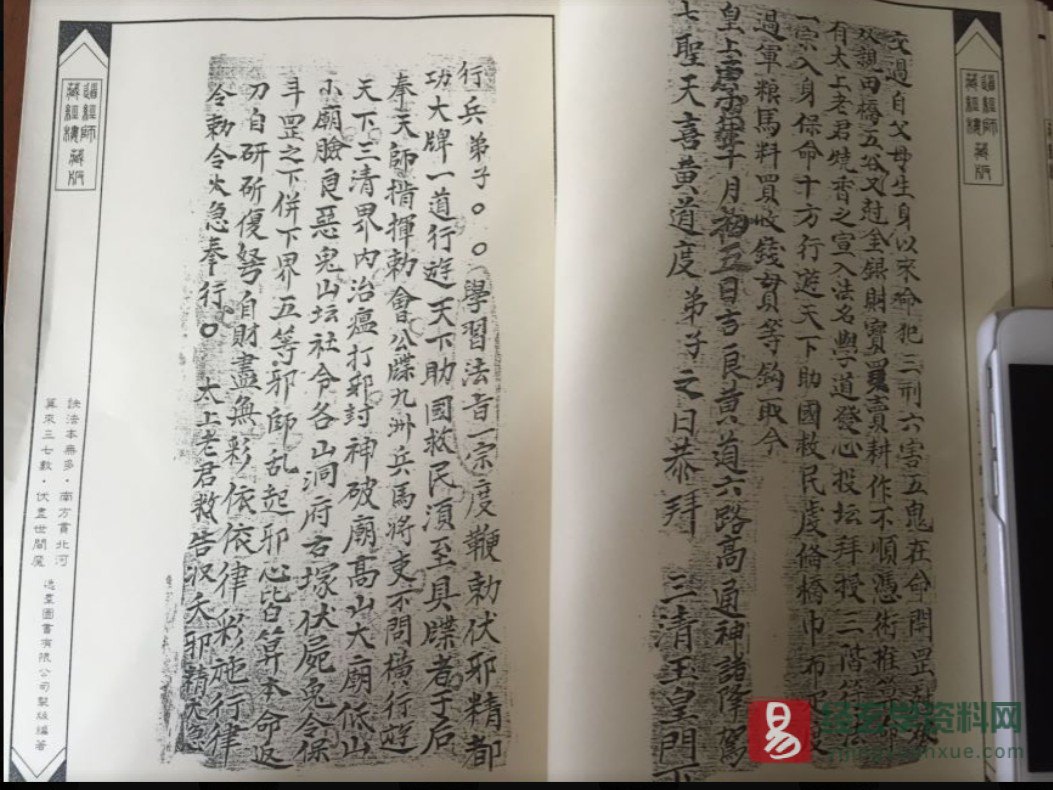 交過自父母生身以來命犯三刑六害五鬼在命開罡
双親田橋五谷又尅金銀財寶買賣耕作不順憑術推算
有太上老君燒香之宣入法名興学道發心投坛拜授三階符
一宗入身保命十方行遊天下助國救民虔俻橋巾布
過軍粮馬料買收錢毋員等鈎取今
皇上 十月初五日吉良黄道六路高通神諸降駕
七聖天喜黄道度弟子之日恭拜 三清玉皇門下
道經師
藏經樓藏版
行兵弟子〇〇學習法旨一宗度鞭勅伏邪精都
功大牌一道行遊天下助國救民湏至具牒者于后
奉天師指揮勅會公牒九洲兵馬將吏不問横行遊
天下三清界内治瘟打邪封神破廟高山大廟低山
小廟臉良惡鬼山坛社令各山洞府右塚伏屍兔令保
斗罡之下併下界五等邪師乱起邪心皆算本命返
刀自研斫復弩自財盡無彩依依律彩施行律
令勅令火急奉行〇 太上老君救告收夭邪精火急
道經師
藏經樓藏版
訣法本無多·南方貫北河
算來三七數·伏盡世間魔
逸群圖書有限公司製版編著
易
玄学资料网
xue.com